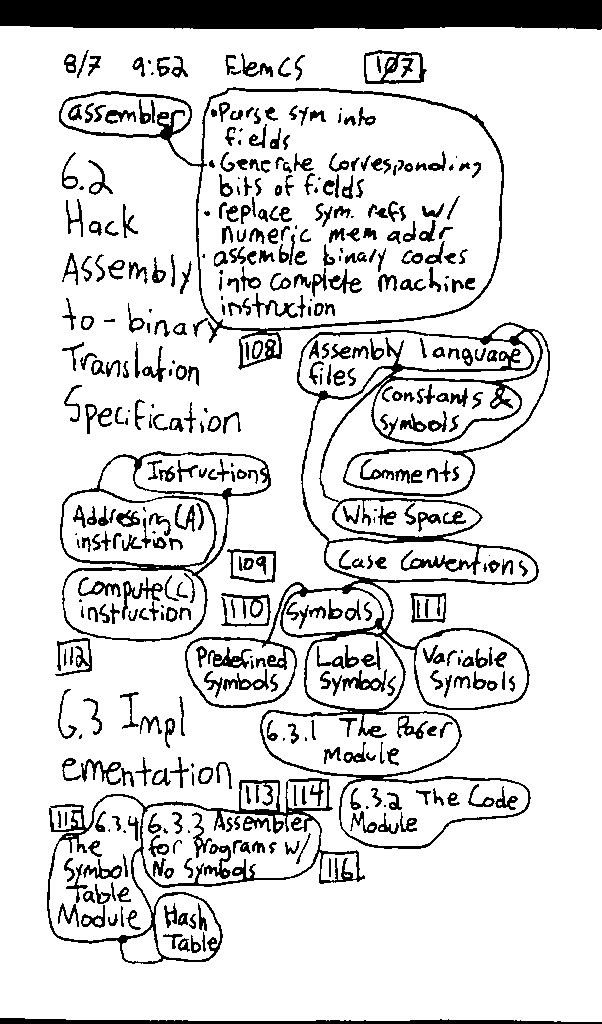 8/7 9:52 ElemCS 107
assembler
• Parse sym into
fields
• Generate corresponding
bits of fields
• replace sym. refs w/
numeric mem addr
• assemble binary codes
into complete machine
instruction
6.2
Hack
Assembly
to-binary
Translation
Specification
108
Assembly language
files
Constants &
Symbols
Comments
White Space
Case Conventions
Instructions
Addressing (A)
instruction
Compute (C)
instruction
109
110
Symbols
111
112
Predefined
Symbols
Label
Symbols
Variable
Symbols
6.3 Impl
ementation
6.3.1 The Paser
Module
113 114
6.3.2 The Code
Module
115
6.3.4
The
Symbol
Table
Module
6.3.3 Assembler
for Programs w/
No Symbols
116
Hash
Table